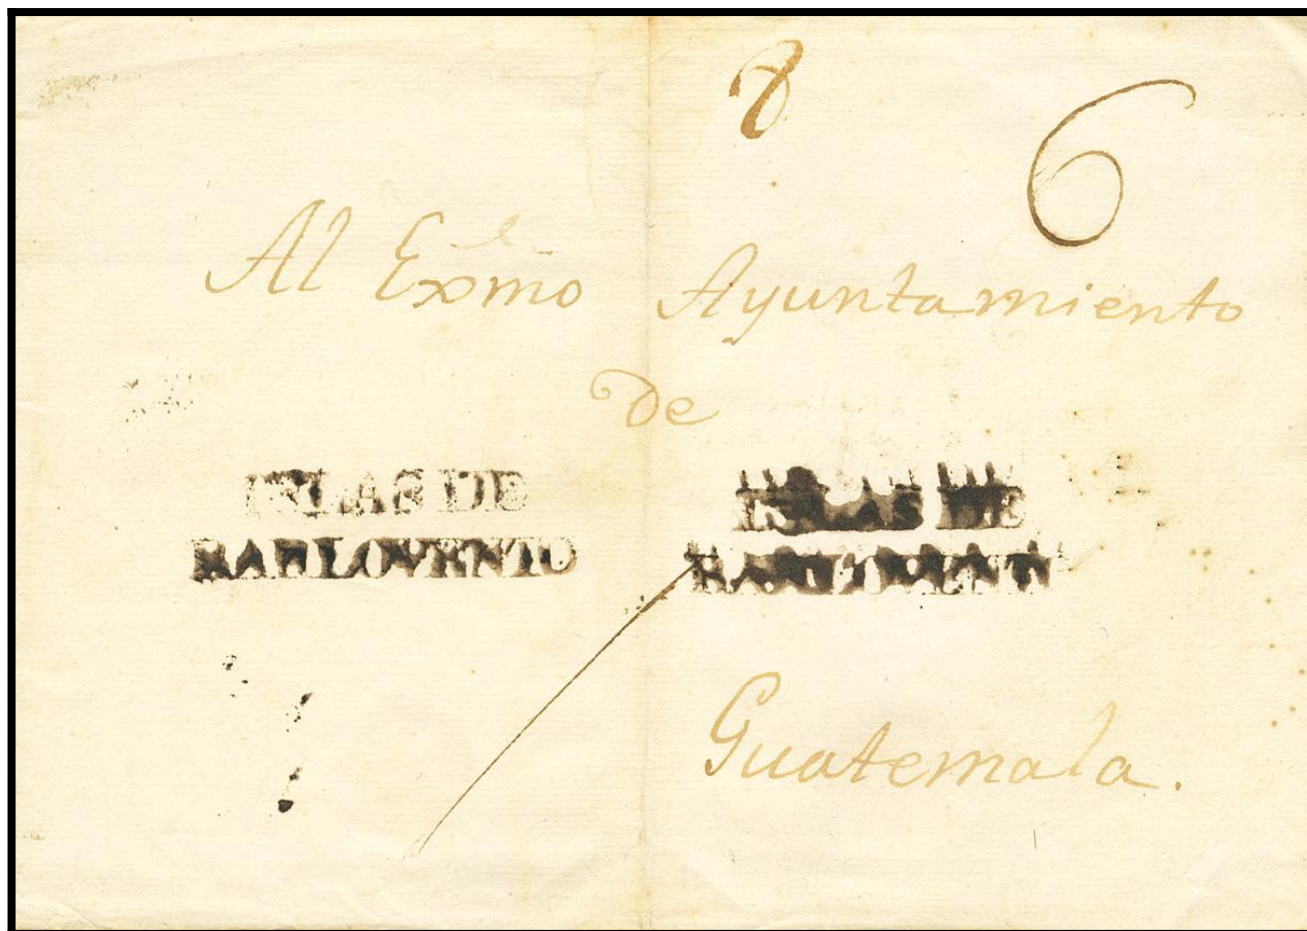 8 6
Al Exmo Ayuntamiento
de
ISLAS DE
BARLOVENTO
ISLAS DE
Guatemala.